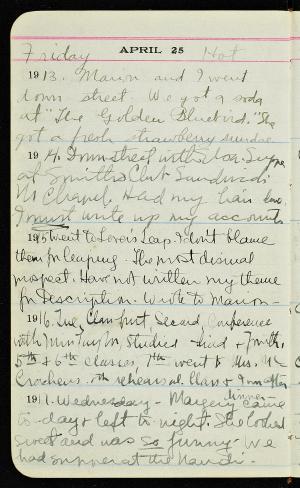 Friday APRIL 25 Hot
1913. Marion and I went
down street. We got a soda
at "The Golden Bluebird." She
got a fresh strawberry sundae
1914. down street with
at Smith's Club Sandwich
Had my hair
I must write up my accounts
1915 Went to Lover's Leap. I don't blame
them for leaping. The most dismal
prospect. Have not written my theme
for Description. Wrote to Marion -
1916. Tue, Class first, Second, Conference
with Miss studied - and 4th
5th & 6th classes, 7th went to Mrs.
Crockers. rehearsal. Class
191 . Wednesday - came
to-day & left to-night. She looked
sweet and was so funny. We
had supper at the